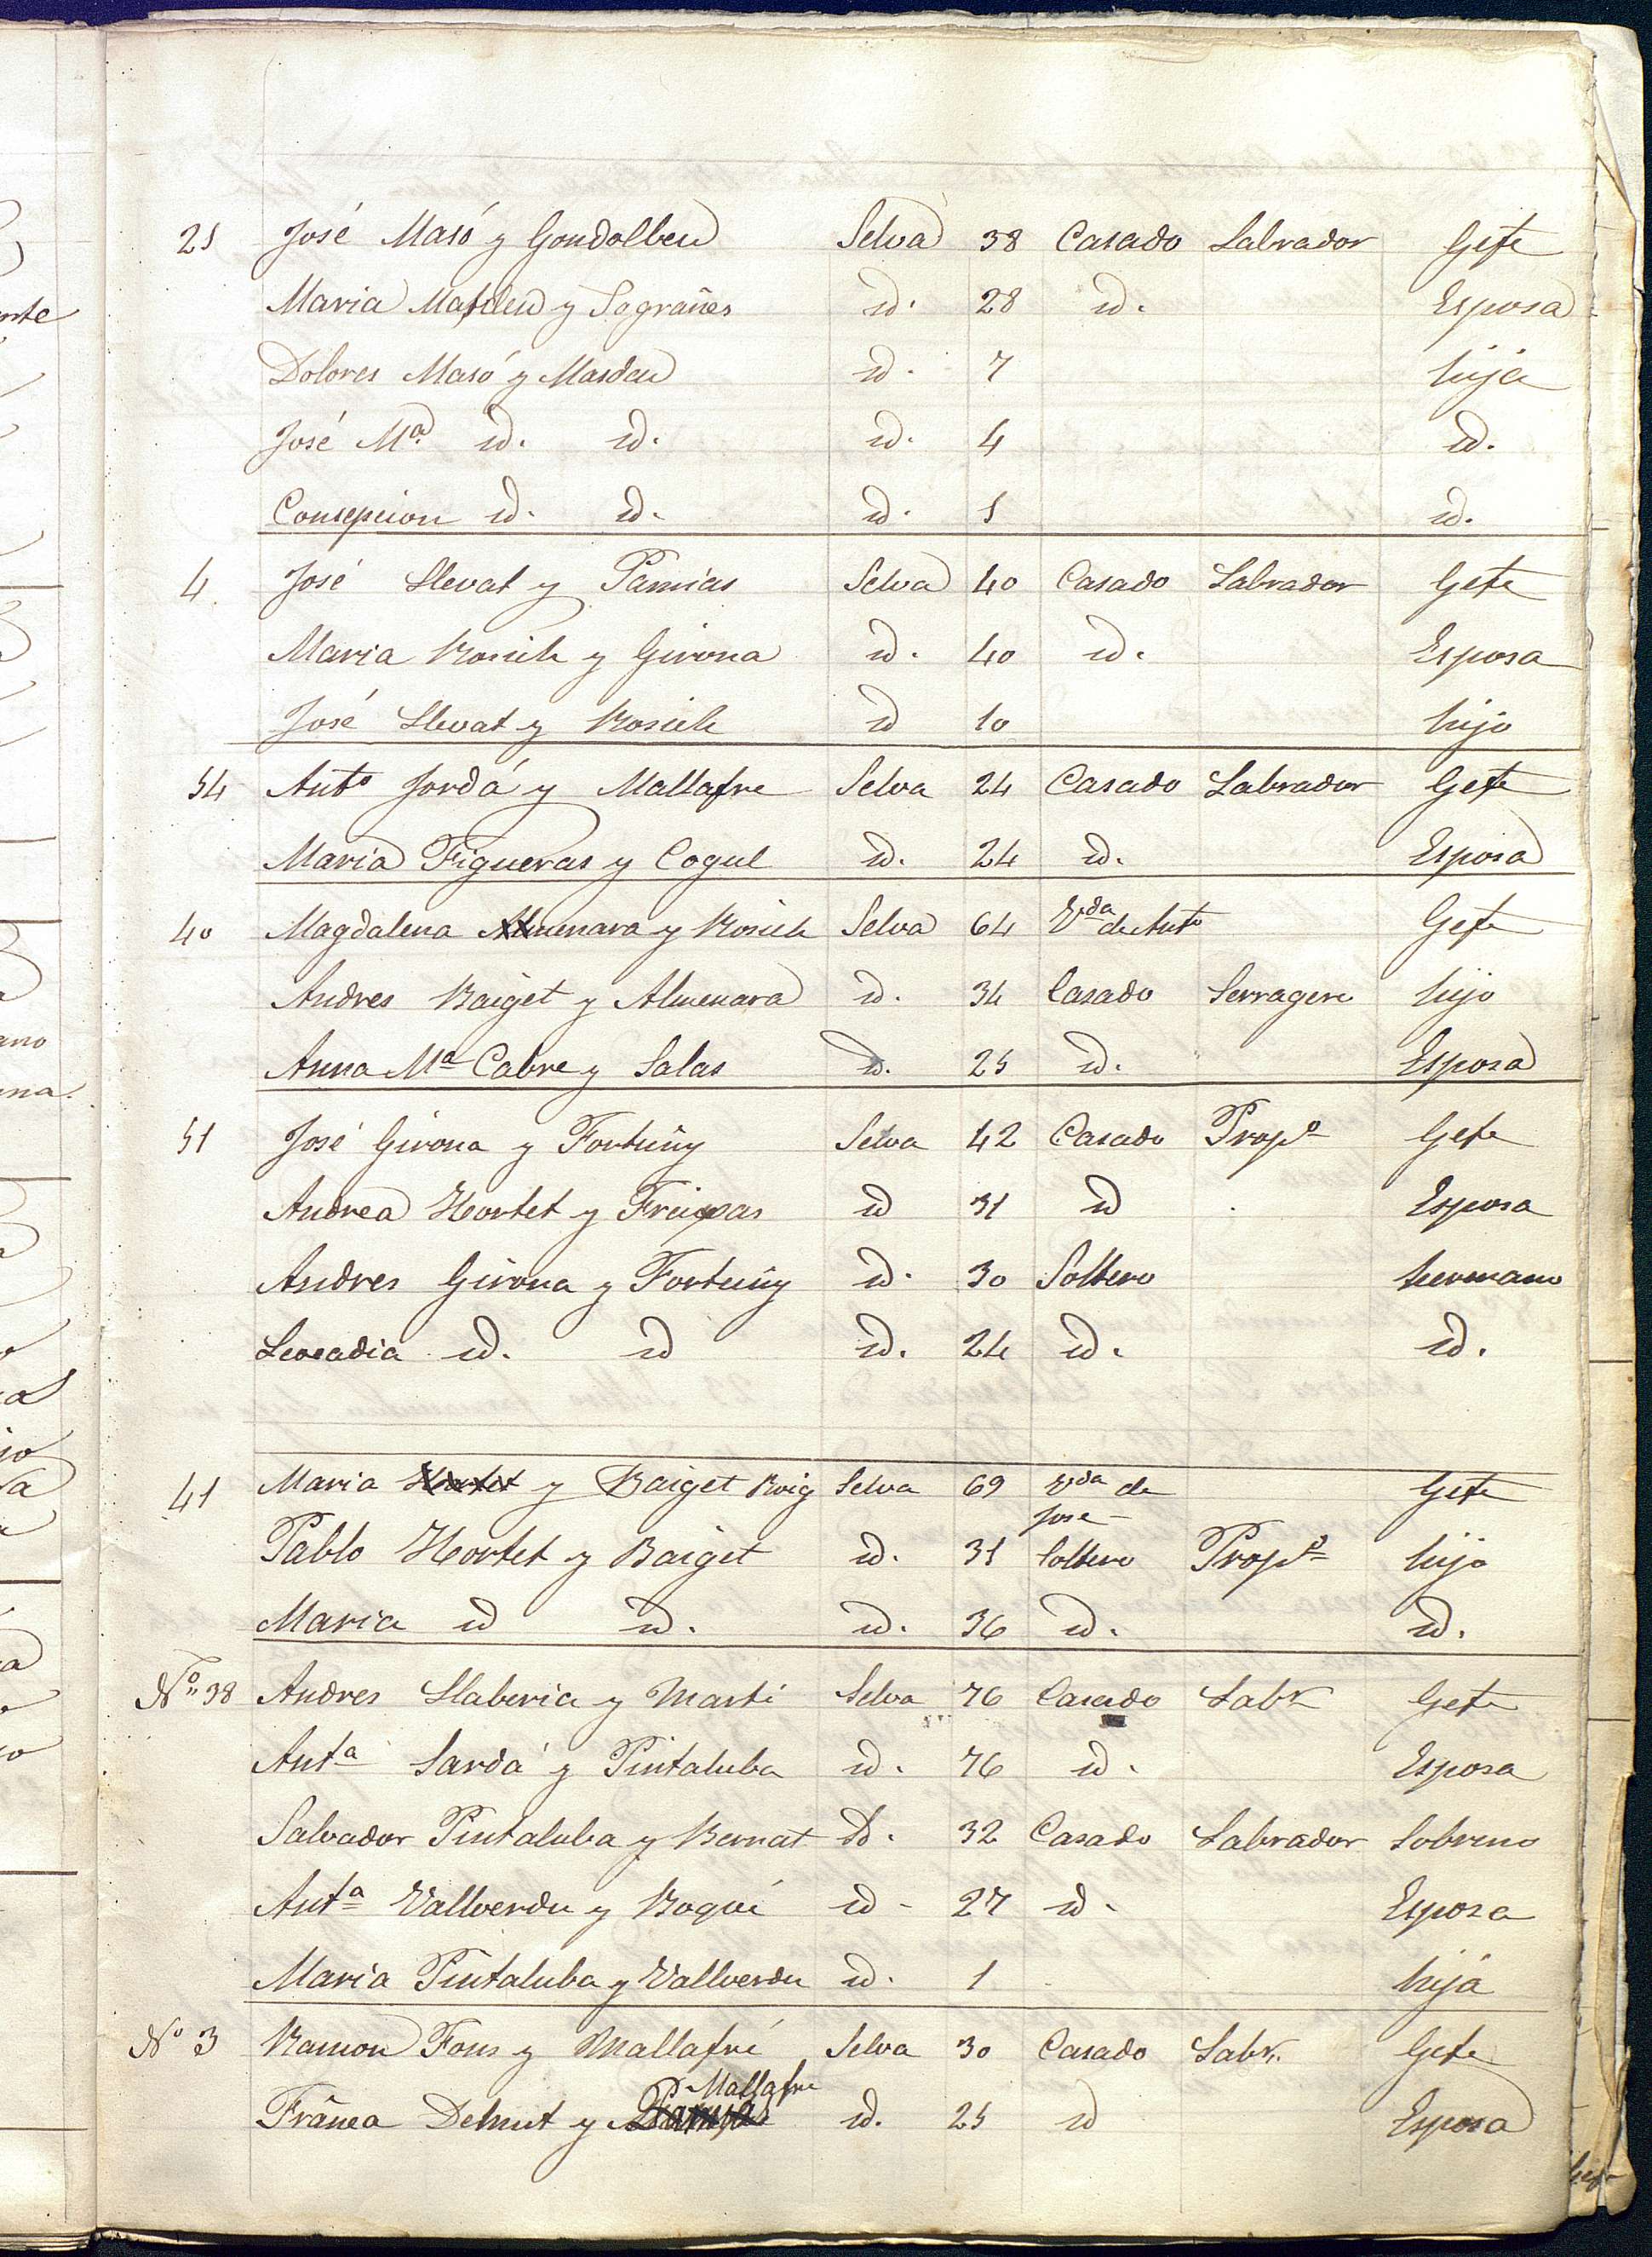 25 José Masó y Gondolbeu Selva 38 Casado Labrador Gefe
Maria Masdeu y Sograñes id. 28 id. Esposa
Dolores Masó y Masdeu id. 7 hija
José Mª id. id. id. 4 id.
Consepcion id. id. id. 1 id.
4 José Llevat y Pamias Selva 40 Casado Labrador Gefe
Maria Rosich y Girona id. 40 id. Esposa
José Llevat y Rosich id 10 hijo
54 Antº Jordá y Mallafre Selva 24 Casado Labrador Gefe
Maria Figueras y Cogul id. 24 id. Esposa
40 Magdalena Almenara y Rosich Selva 64 Vda de Antº Gefe
Andres Baiget y Almenara id. 34 Casado Serragero hijo
Anna Mª Cabre y Salas id. 25 id. Esposa
51 José Girona y Fortuñy Selva 42 Casado Propº Gefe
Andrea Hortet y Freixas id 31 id Esposa
Andres Girona y Fortuñy id. 30 Soltero hermano
Leocadia id. id id. 24 id. id.
41 Maria y Baiget Roig Selva 69 Vda de Jose Gefe
Pablo Hortet y Baiget id. 31 Soltero Propº hijo
Maria id id. id. 36 id. id.
Nº 38 Andres Llaberia y Marti Selva 76 Casado Labr Gefe
Antª Sardá y Pintaluba id. 76 id. Esposa
Salvador Pintaluba y Bernat id. 32 Casado Labrador Sobrino
Antª Vallverdu y Roqué id 27 id. Esposa
Maria Pintaluba y Vallverdu id. 1 hija
Nº 3 Ramon Fons y Mallafré Selva 30 Casado Labr. Gefe
Mallafre
Franca y id. 25 id Esposa